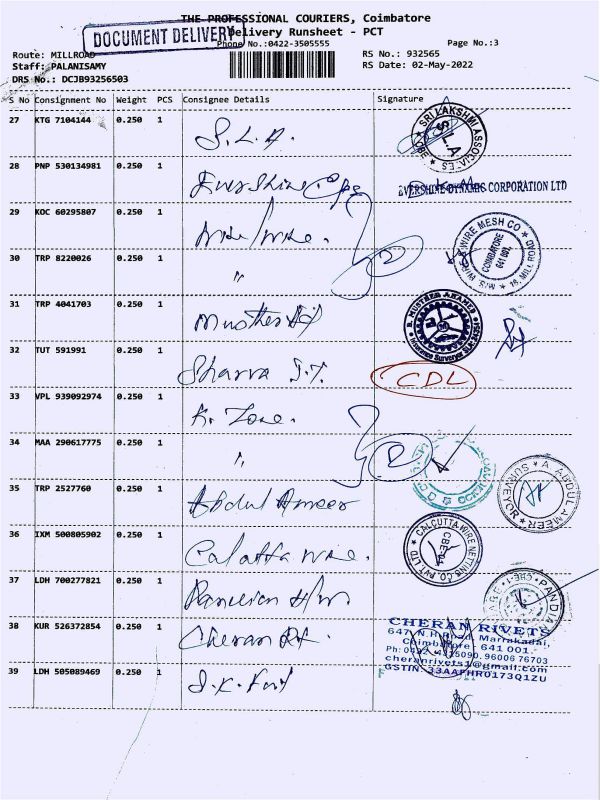 THE PROFESSIONAL COURIERS, Coimbatore
DOCUMENT DELIVERY
Delivery Runsheet - PCT
Phone No.:0422-3505555
Page No.:3
Route: MILLROAD
RS No.: 932565
Staff: PALANISAMY
RS Date: 02-May-2022
DRS No.: DCJB93256503
S No Consignment No Weight PCS Consignee Details Signature
27 KTG 7104144 0.250 1 S.L.A.
SRI LAKSHMI ASSOCIATES
SLA
28 PNP 530134981 0.250 1
EVERSHINE DYNAMIC CORPORATION LTD
29 KOC 60295807 0.250 1
WIRE MESH CO
COIMBATORE
641 001.
30 TRP 8220026 0.250 1 〃
2
31 TRP 4041703 0.250 1
Insurance Surveyor
32 TUT 591991 0.250 1 Sharra S.T. CDL
33 VPL 939092974 0.250 1 K. Zone.
34 MAA 290617775 0.250 1 〃
2
35 TRP 2527760 0.250 1 Abdul Ameer
A. ABDUL AMEER
SURVEYOR
36 IXM 500805902 0.250 1 Calcutta wire.
CALCUTTA WIRE NETTING CO. PVT. LTD
37 LDH 700277821 0.250 1 Pandian H/w.
38 KUR 526372854 0.250 1 Cheran Rt.
CHERAN RIVETS
647, N.H. Road, Marrakadai,
Coimbatore - 641 001.
96006 76703
cheranrivets1@gmail.com
GSTIN: 33AAPHR0173Q1ZU
39 LDH 505089469 0.250 1